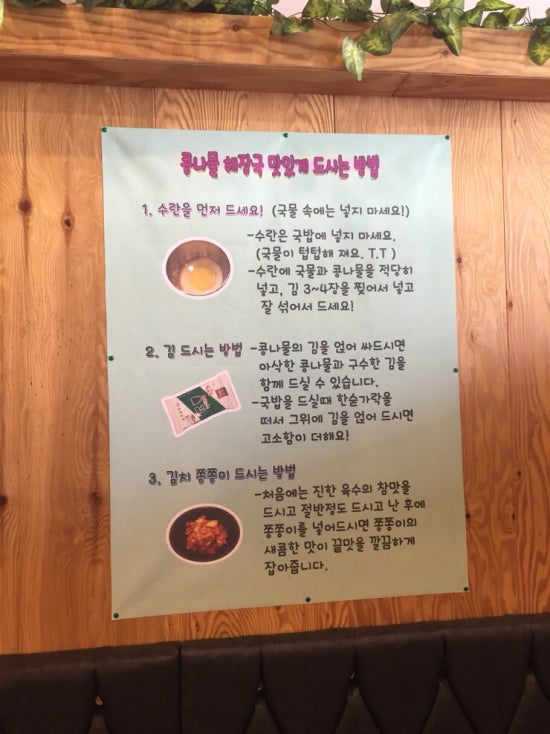 콩나물 해장국 맛있게 드시는 방법
1. 수란을 먼저 드세요! (국물 속에는 넣지 마세요!)
-수란은 국밥에 넣지 마세요.
(국물이 텁텁해 져요. T.T )
-수란에 국물과 콩나물을 적당히
넣고, 김 3~4장을 찢어서 넣고
잘 섞어서 드세요!
2. 김 드시는 방법 -콩나물의 김을 얹어 싸드시면
아삭한 콩나물과 구수한 김을
함께 드실 수 있습니다.
-국밥을 드실때 한숟가락을
떠서 그위에 김을 얹어 드시면
고소함이 더해요!
3. 김치 쫑쫑이 드시는 방법
-처음에는 진한 육수의 참맛을
드시고 절반정도 드시고 난 후에
쫑쫑이를 넣어드시면 쫑쫑이의
새콤한 맛이 끝맛을 깔끔하게
잡아줍니다.